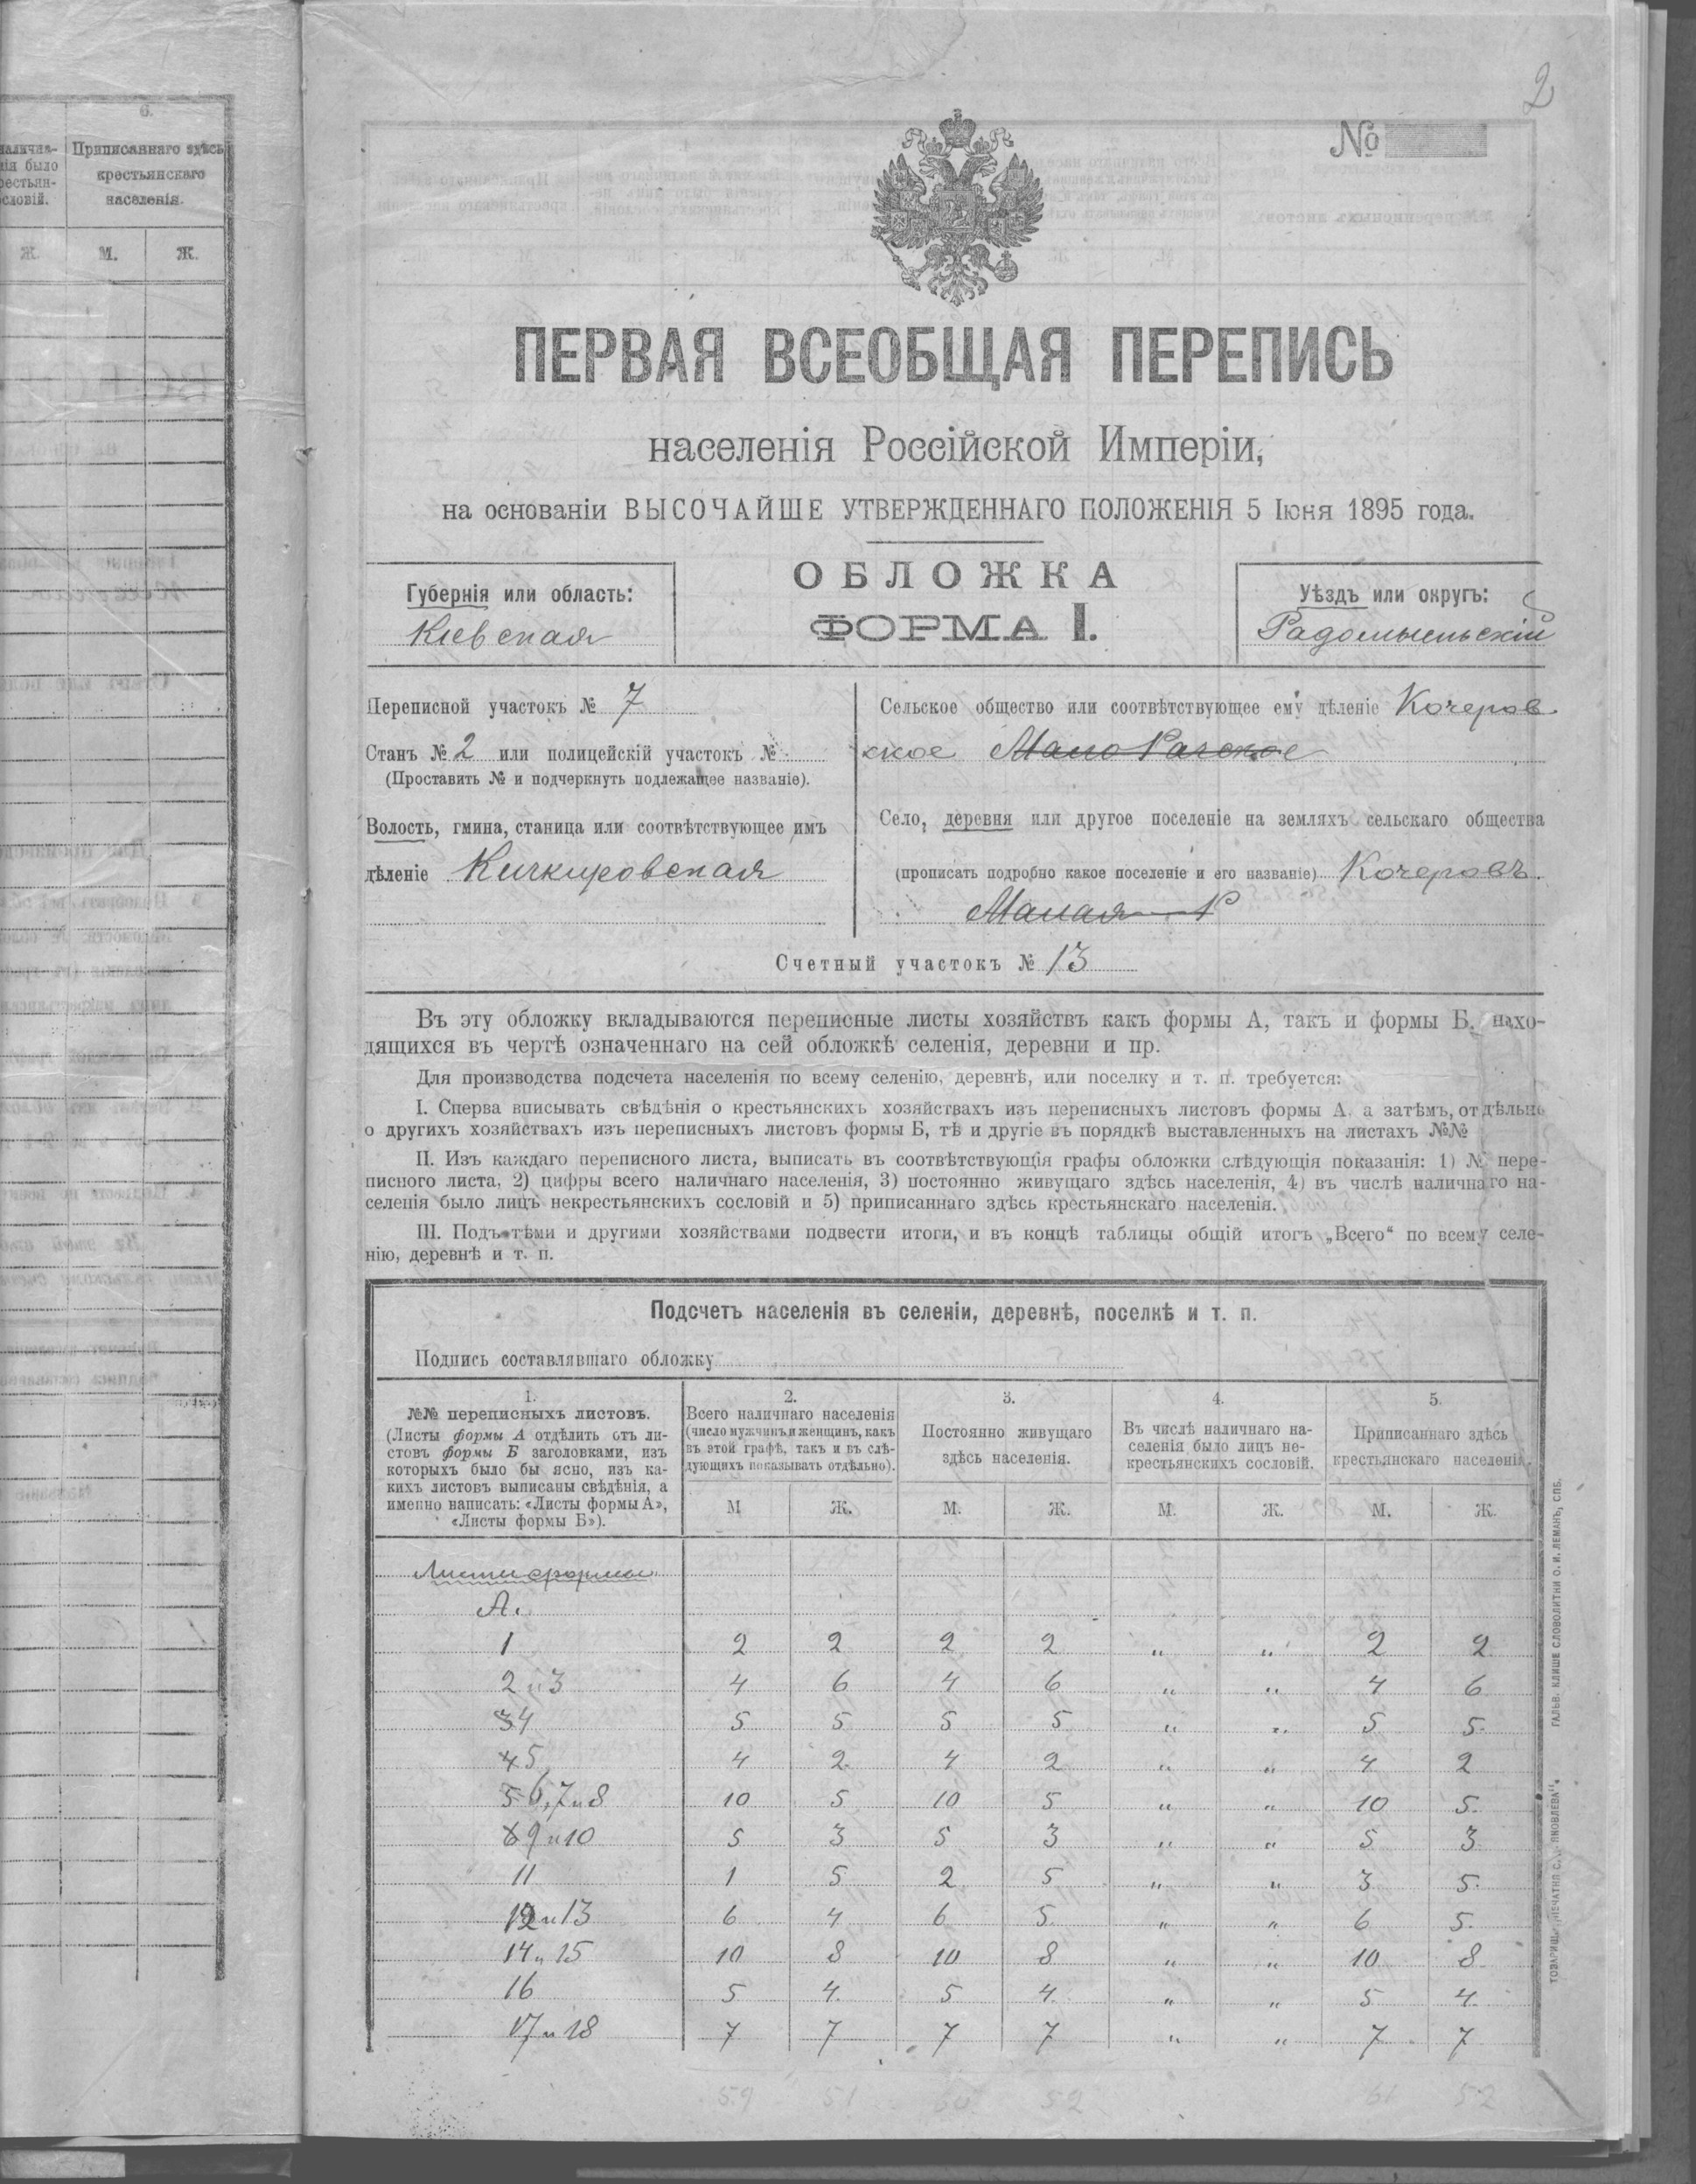 6.
Приписаннаго здѣсь
крестьянскаго
населенія.
Ж. М. Ж.
2
№
ПЕРВАЯ ВСЕОБЩАЯ ПЕРЕПИСЬ
населенія Россійской Имперіи,
на основаніи ВЫСОЧАЙШЕ УТВЕРЖДЕННАГО ПОЛОЖЕНІЯ 5 Іюня 1895 года.
ОБЛОЖКА
ФОРМА I.
Губернія или область:
Кіевская
Уѣздъ или округъ:
Радомысльскій
Переписной участокъ № 7
Станъ № 2 или полицейскій участокъ №
(Проставить № и подчеркнуть подлежащее названіе).
Волость, гмина, станица или соотвѣтствующее имъ
дѣленіе Кичкировская
Сельское общество или соотвѣтствующее ему дѣленіе Кочеров
ское Мало Рачское
Село, деревня или другое поселеніе на земляхъ сельскаго общества
(прописать подробно какое поселеніе и его названіе) Кочеровъ.
Малая Р
Счетный участокъ № 13
Въ эту обложку вкладываются переписные листы хозяйствъ какъ формы А, такъ и формы Б, нахо-
дящихся въ чертѣ означеннаго на сей обложкѣ селенія, деревни и пр.
Для производства подсчета населенія по всему селенію, деревнѣ, или поселку и т. п. требуется:
I. Сперва вписывать свѣдѣнія о крестьянскихъ хозяйствахъ изъ переписныхъ листовъ формы А, а затѣмъ, отдѣльно
о другихъ хозяйствахъ изъ переписныхъ листовъ формы Б, тѣ и другіе въ порядкѣ выставленныхъ на листахъ №№
II. Изъ каждаго переписного листа, выписать въ соотвѣтствующія графы обложки слѣдующія показанія: 1) № пере-
писного листа, 2) цифры всего наличнаго населенія, 3) постоянно живущаго здѣсь населенія, 4) въ числѣ наличнаго на-
селенія было лицъ некрестьянскихъ сословій и 5) приписаннаго здѣсь крестьянскаго населенія.
III. Подъ тѣми и другими хозяйствами подвести итоги, и въ концѣ таблицы общій итогъ „Всего“ по всему селе-
нію, деревнѣ и т. п.
Подсчетъ населенія въ селеніи, деревнѣ, поселкѣ и т. п.
Подпись составлявшаго обложку
1.
№№ переписныхъ листовъ.
(Листы формы А отдѣлить отъ ли-
стовъ формы Б заголовками, изъ
которыхъ было бы ясно, изъ ка-
кихъ листовъ выписаны свѣдѣнія, а
именно написать: «Листы формы А»,
«Листы формы Б»).
2.
Всего наличнаго населенія
(число мужчинъ и женщинъ, какъ
въ этой графѣ, такъ и въ слѣ-
дующихъ показывать отдѣльно).
3.
Постоянно живущаго
здѣсь населенія.
4.
Въ числѣ наличнаго на-
селенія было лицъ не-
крестьянскихъ сословій.
5.
Приписаннаго здѣсь
крестьянскаго населенія.
М Ж. М. Ж. М. Ж. М. Ж.
Листы формы
А.
1 2 2 2 2 „ „ 2 2
2 и 3 4 6 4 6 „ „ 4 6
3 4 5 5 5 5 „ „ 5 5
4 5 4 2 4 2 „ „ 4 2
5 6, 7 и 8 10 5 10 5 „ „ 10 5
6 9 и 10 5 3 5 3 „ „ 5 3
11 1 5 2 5 „ „ 3 5
12 и 13 6 4 6 5 „ „ 6 5
14 и 15 10 8 10 8 „ „ 10 8
16 5 4 5 4 „ „ 5 4
17 и 18 7 7 7 7 „ „ 7 7
59 51 60 52 61 52
ГАЛЬВ. КЛИШЕ СЛОВОЛИТНИ О. И. ЛЕМАНЪ, СПБ.